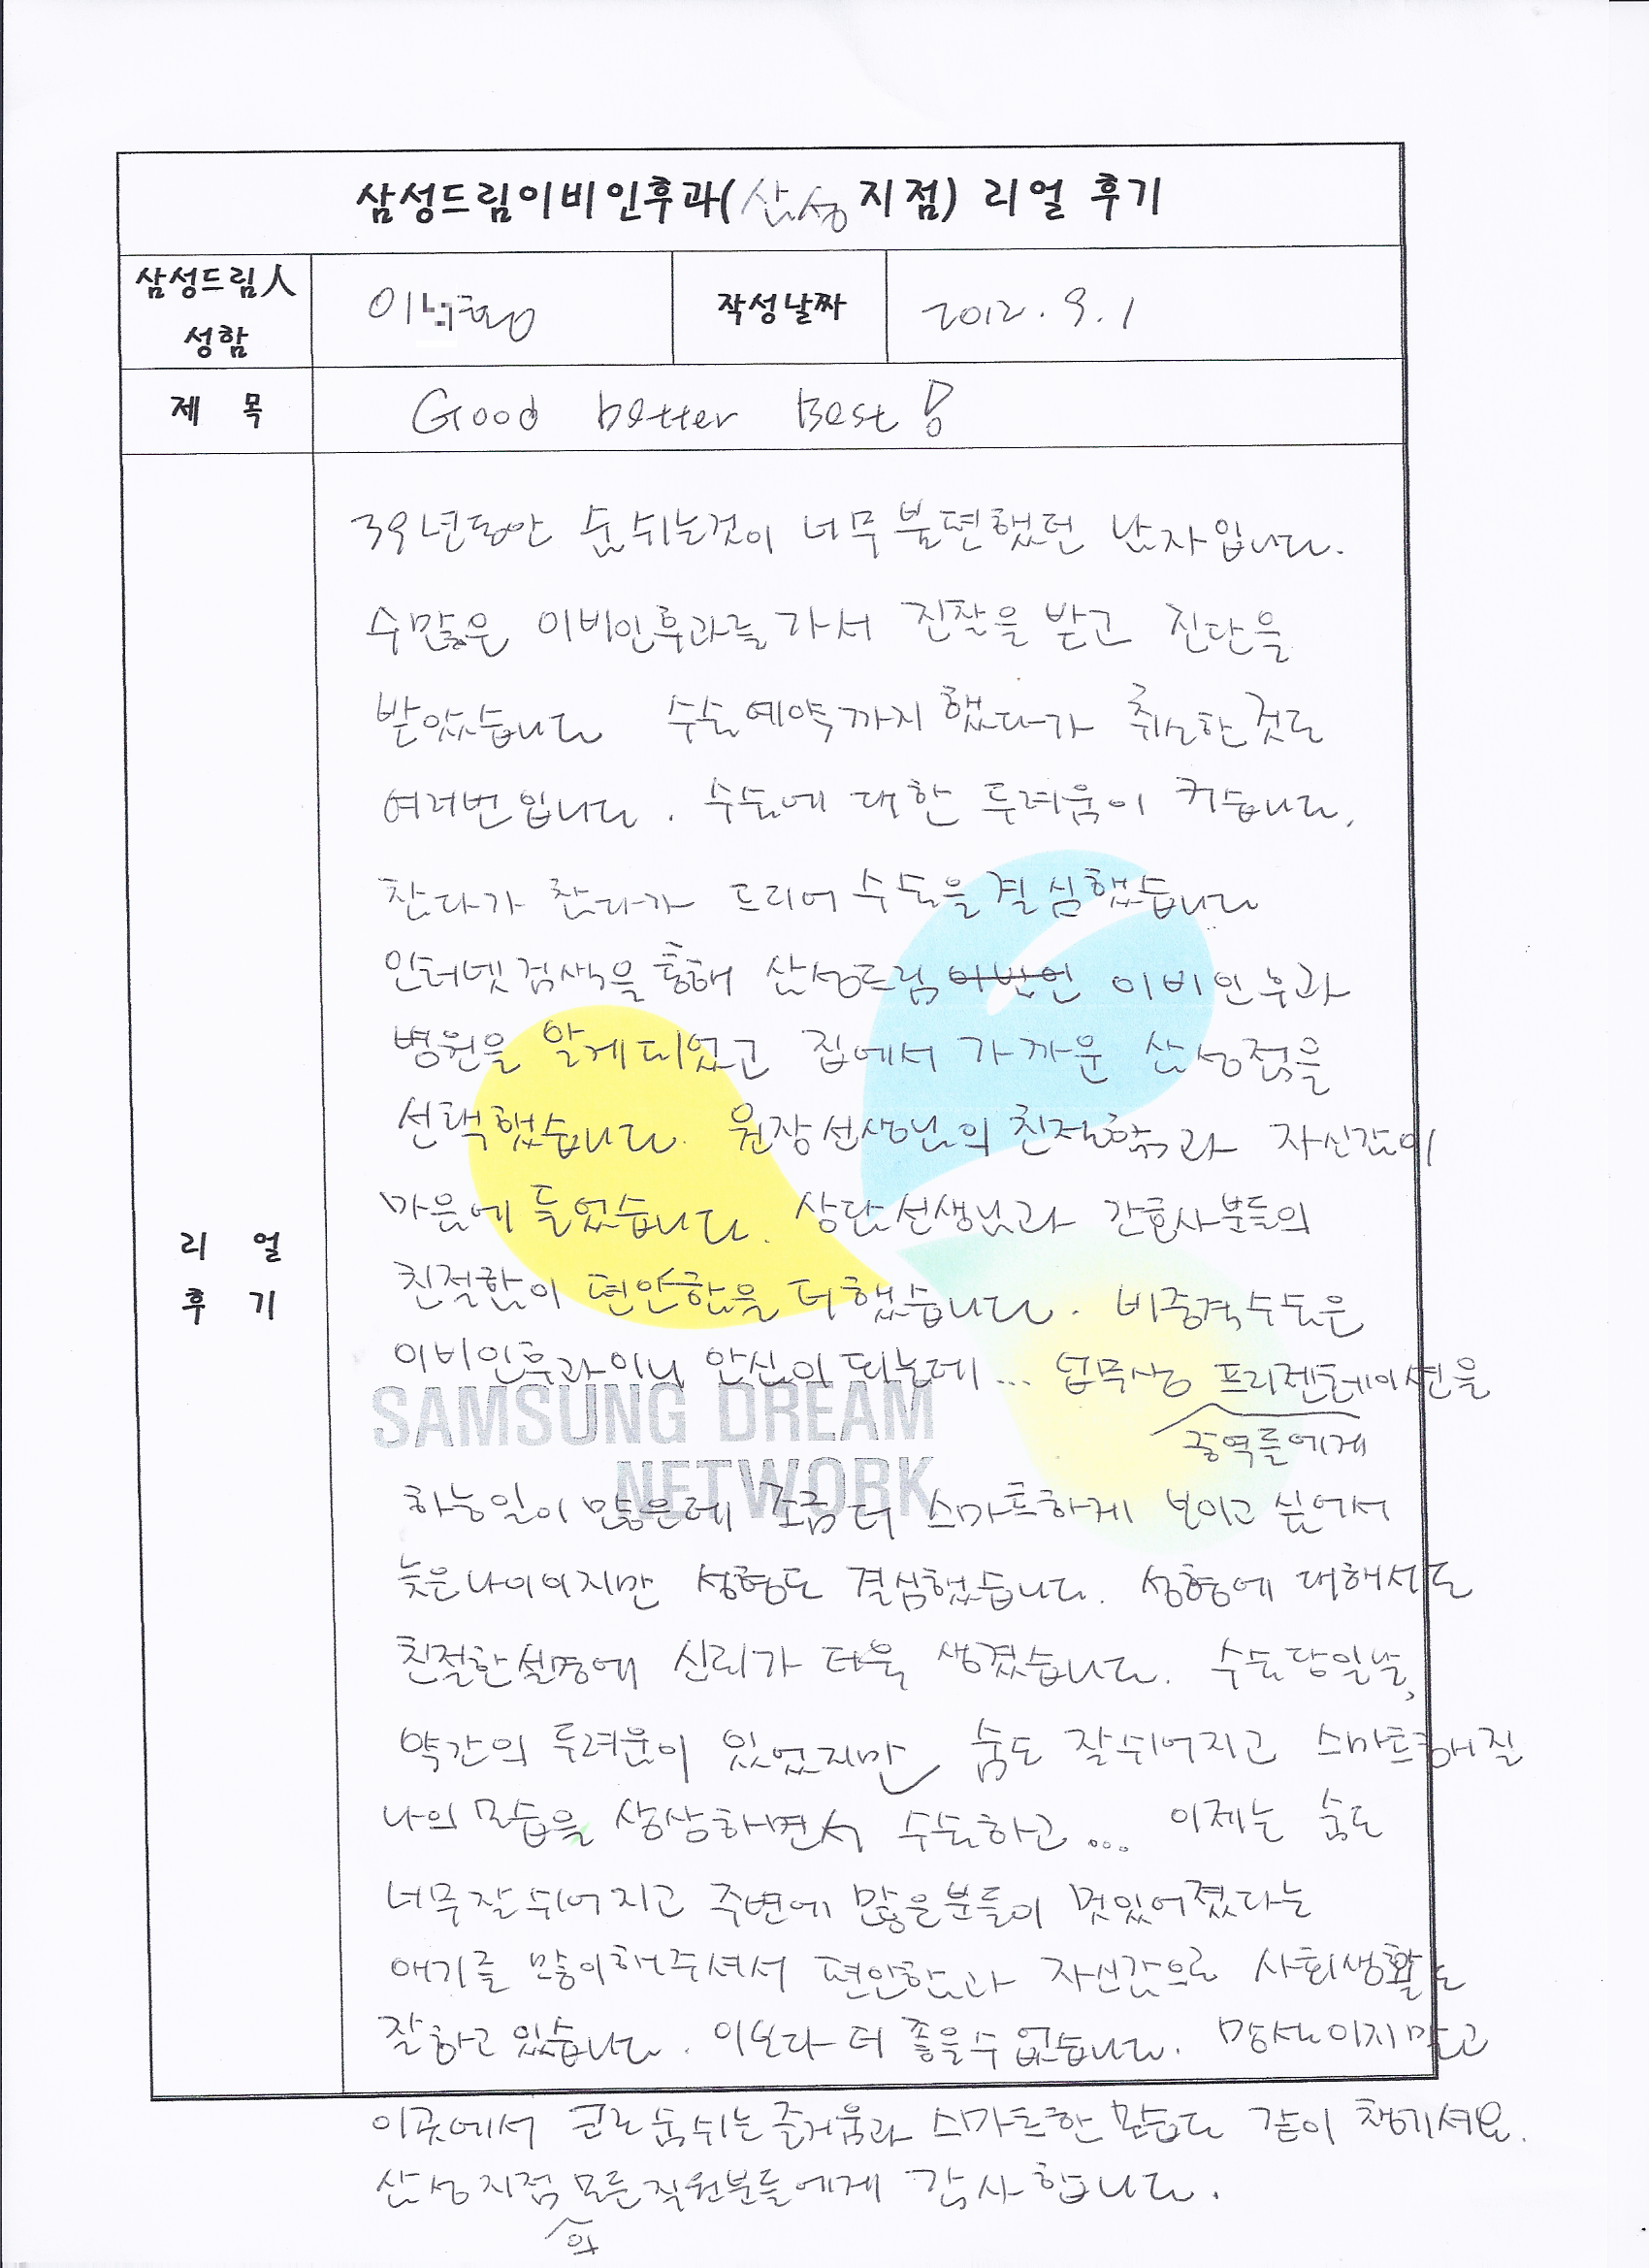 삼성드림이비인후과(삼성지점) 리얼 후기
삼성드림人 성함
작성날짜 2012. 9. 1
제 목 Good better Best!
39년동안 숨쉬는것이 너무 불편했던 남자입니다.
수많은 이비인후과를 가서 진찰을 받고 진단을
받았습니다 수술예약까지 했다가 취소한것도
여러번입니다. 수술에 대한 두려움이 커습니다.
참다가 참다가 드디어 수술을 결심했습니다
인터넷 검색을 통해 삼성드림 이비인후과
병원을 알게되었고 집에서 가까운 삼성점을
선택했습니다. 원장선생님의 친절함과 자신감이
마음에 들었습니다. 상담선생님과 간호사분들의
친절함이 편안함을 더했습니다. 비중격수술은
이비인후과이니 안심이 되는데... 업무상 프리젠테이션을
중역들에게
하는일이 많은데 조금 더 스마트하게 보이고 싶어서
늦은나이이지만 성형도 결심했습니다. 성형에 대해서도
친절한 설명에 신뢰가 더욱 생겼습니다. 수술당일날,
약간의 두려움이 있었지만 숨도 잘쉬어지고 스마트해질
나의 모습을 상상하면서 수술하고... 이제는 숨도
너무잘쉬어지고 주변에 많은분들이 멋있어졌다는
얘기를 많이해주셔서 편안함과 자신감으로 사회생활도
잘하고 있습니다. 이보다 더 좋을수 없습니다. 망서이지말고
이곳에서 코로 숨쉬는 즐거움과 스마트한 모습도 같이 챙기셔요.
삼성지점 모든직원분들에게 감사합니다.
리 얼
후 기
SAMSUNG DREAM
NETWORK